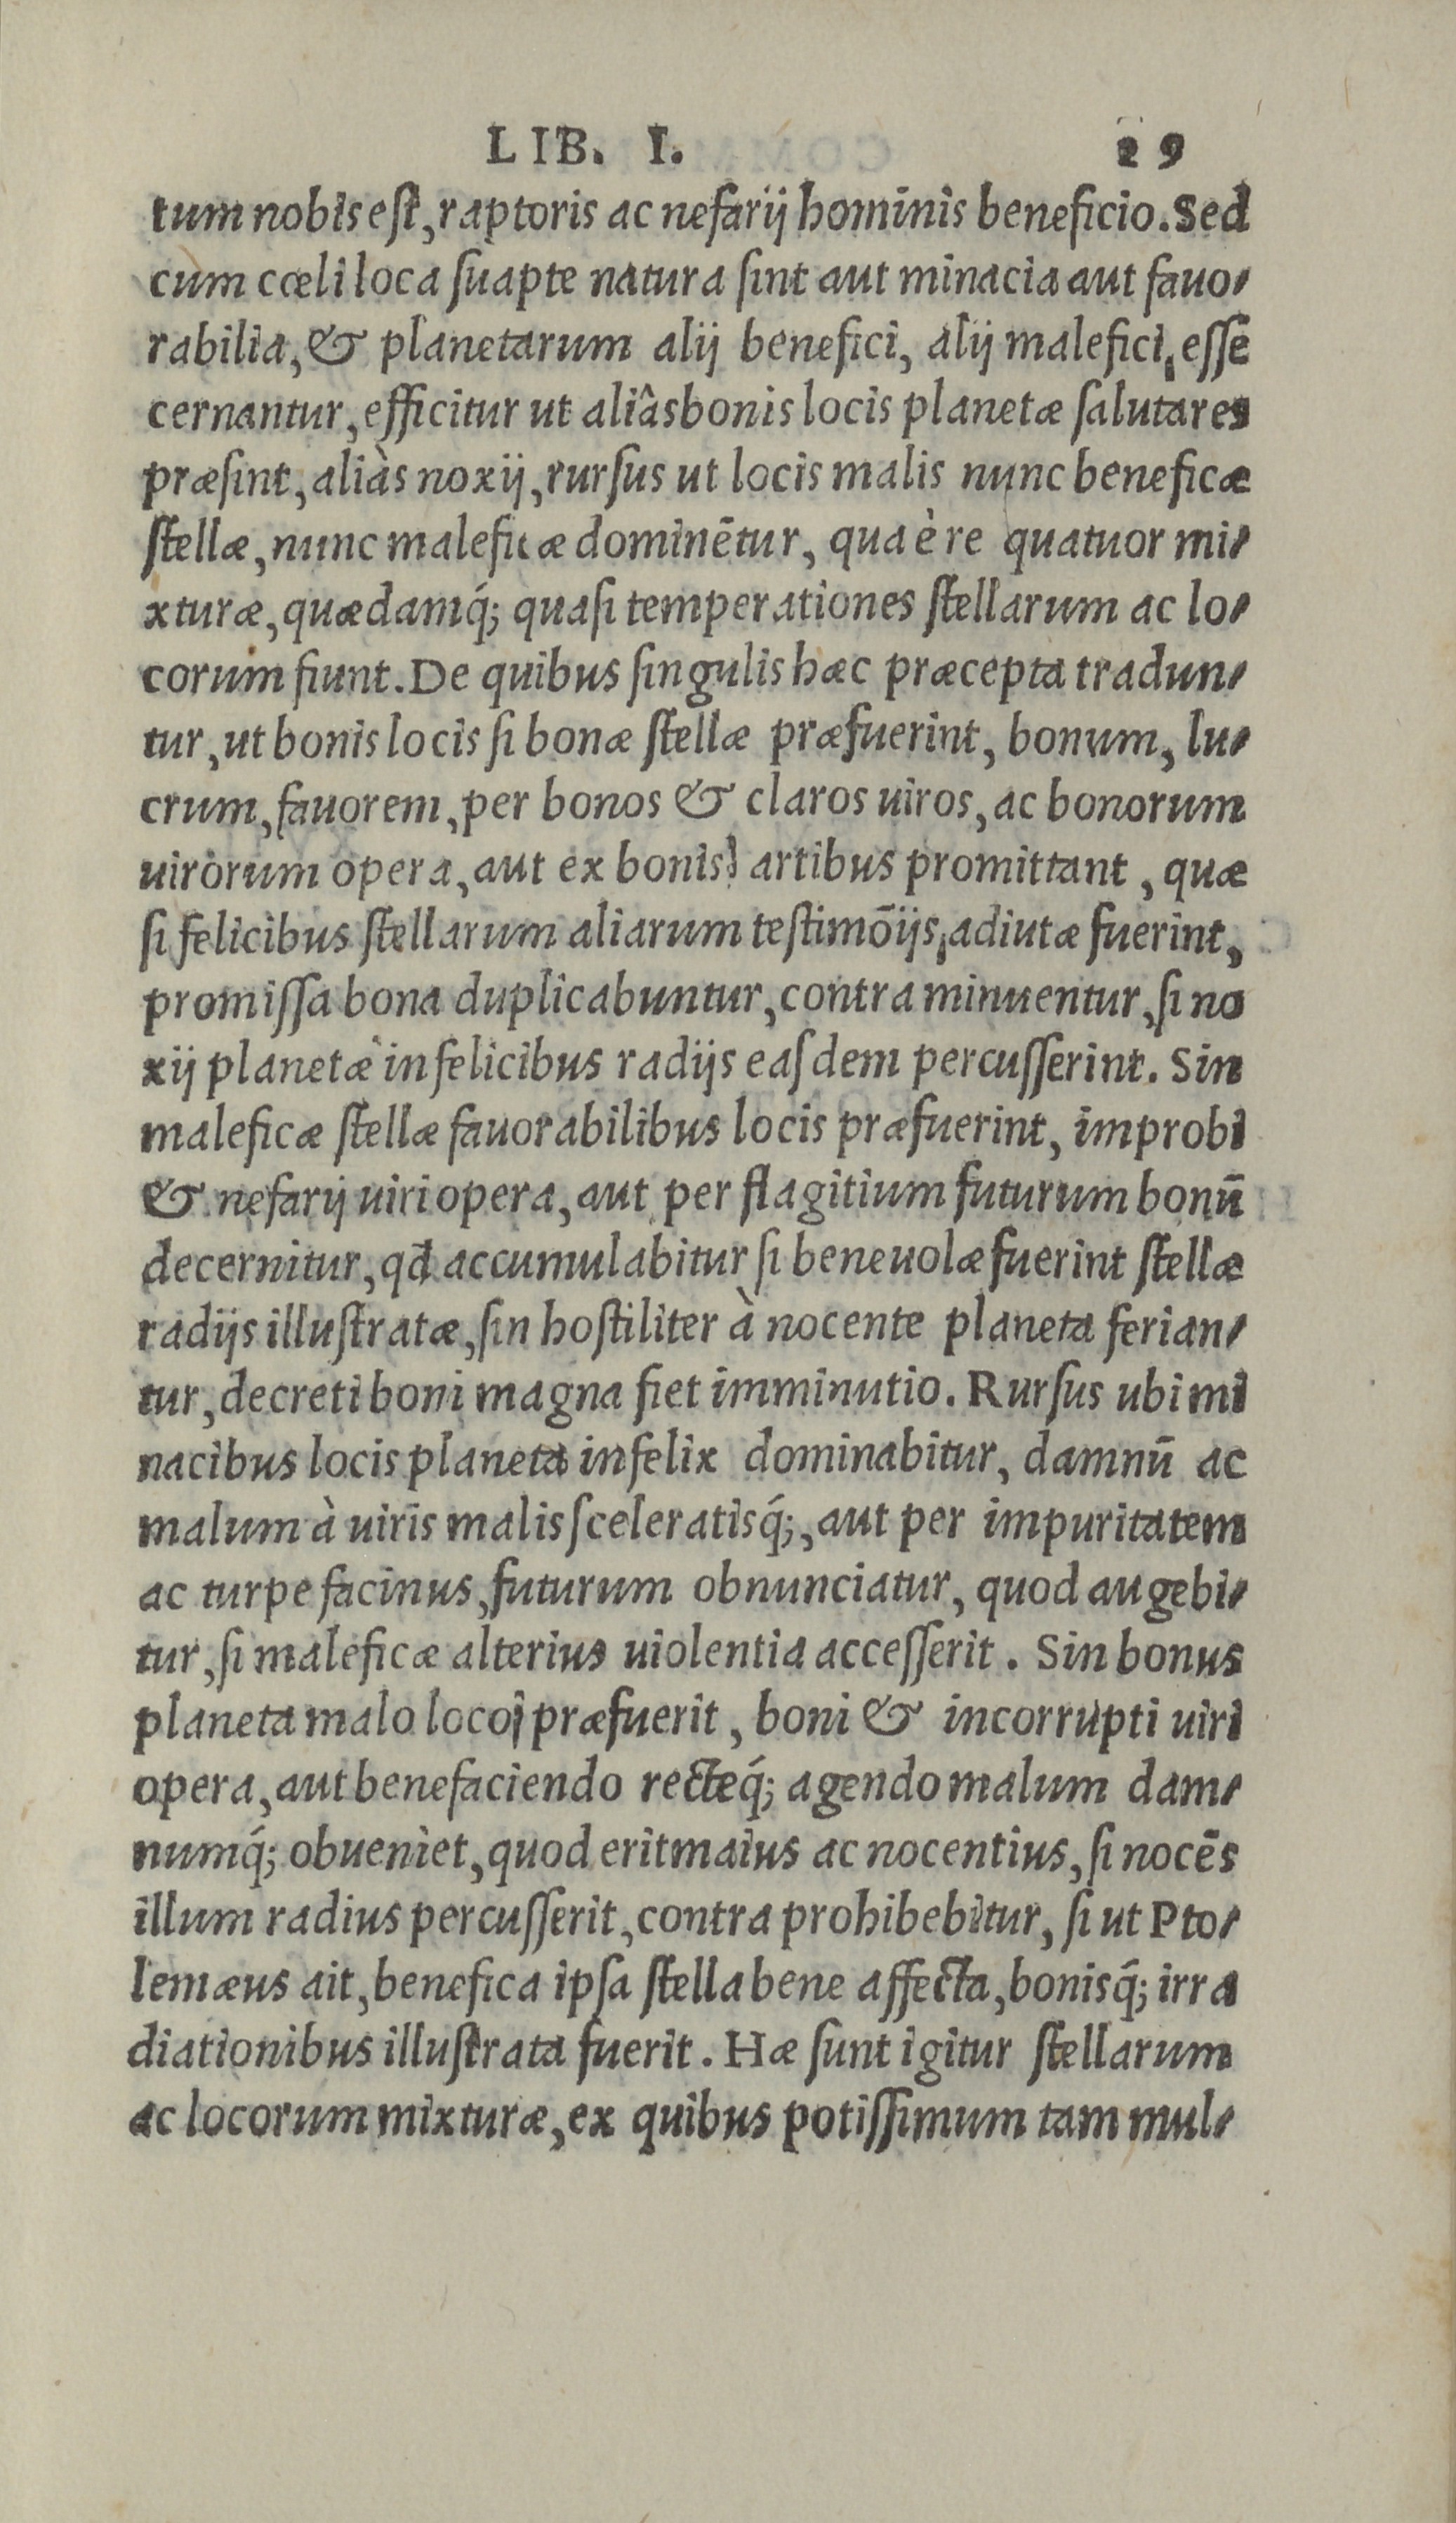 LIB. I. 29
tum nobis est, raptoris ac nefarij hominis beneficio. Sed
cum cœli loca suapte natura sint aut minacia aut fauo-
rabilia, & planetarum alij benefici, alij malefici, esse
cernantur, efficitur ut aliâs bonis locis planetæ salutares
præsint, aliàs noxij, rursus ut locis malis nunc beneficæ
stellæ, nunc maleficæ dominētur, qua è re quatuor mi-
xturæ, quædamq́; quasi temperationes stellarum ac lo-
corum fiunt. De quibus singulis hæc præcepta tradun-
tur, ut bonis locis si bonæ stellæ præfuerint, bonum, lu-
crum, fauorem, per bonos & claros uiros, ac bonorum
uirorum opera, aut ex bonis artibus promittant, quæ
si felicibus stellarum aliarum testimōijs, adiutæ fuerint,
promissa bona duplicabuntur, contra minuentur, si no
xij planetæ infelicibus radijs easdem percusserint. Sin
maleficæ stellæ fauorabilibus locis præfuerint, improbi
& nefarij uiri opera, aut per flagitium futurum bonū
decernitur, qđ accumulabitur si beneuolæ fuerint stellæ
radijs illustratæ, sin hostiliter à nocente planeta ferian-
tur, decreti boni magna fiet imminutio. Rursus ubi mi
nacibus locis planeta infelix dominabitur, damnū ac
malum à uiris malis sceleratisq́;, aut per impuritatem
ac turpe facinus, futurum obnunciatur, quod augebi-
tur, si maleficæ alterius uiolentia accesserit. Sin bonus
planeta malo loco præfuerit, boni & incorrupti uiri
opera, aut benefaciendo recteq́; agendo malum dam-
numq́; obueniet, quod erit maius ac nocentius, si nocēs
illum radius percusserit, contra prohibebitur, si ut Pto-
lemæus ait, benefica ipsa stella bene affecta, bonisq́; irra
diationibus illustrata fuerit. Hæ sunt igitur stellarum
ac locorum mixturæ, ex quibus potissimum tam mul-